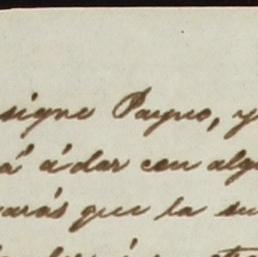 signe Payno, y
rá á dar con alg
varás que la su